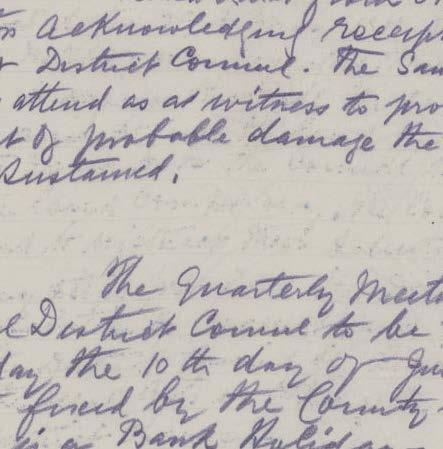 Acknowledging receip
District Council. The San
attend as a witness to pro
t of probable damage the
sustained.
The Quarterly Meet
District Council to be
day the 10th day of Jun
fixed by the County
is a Bank Holiday